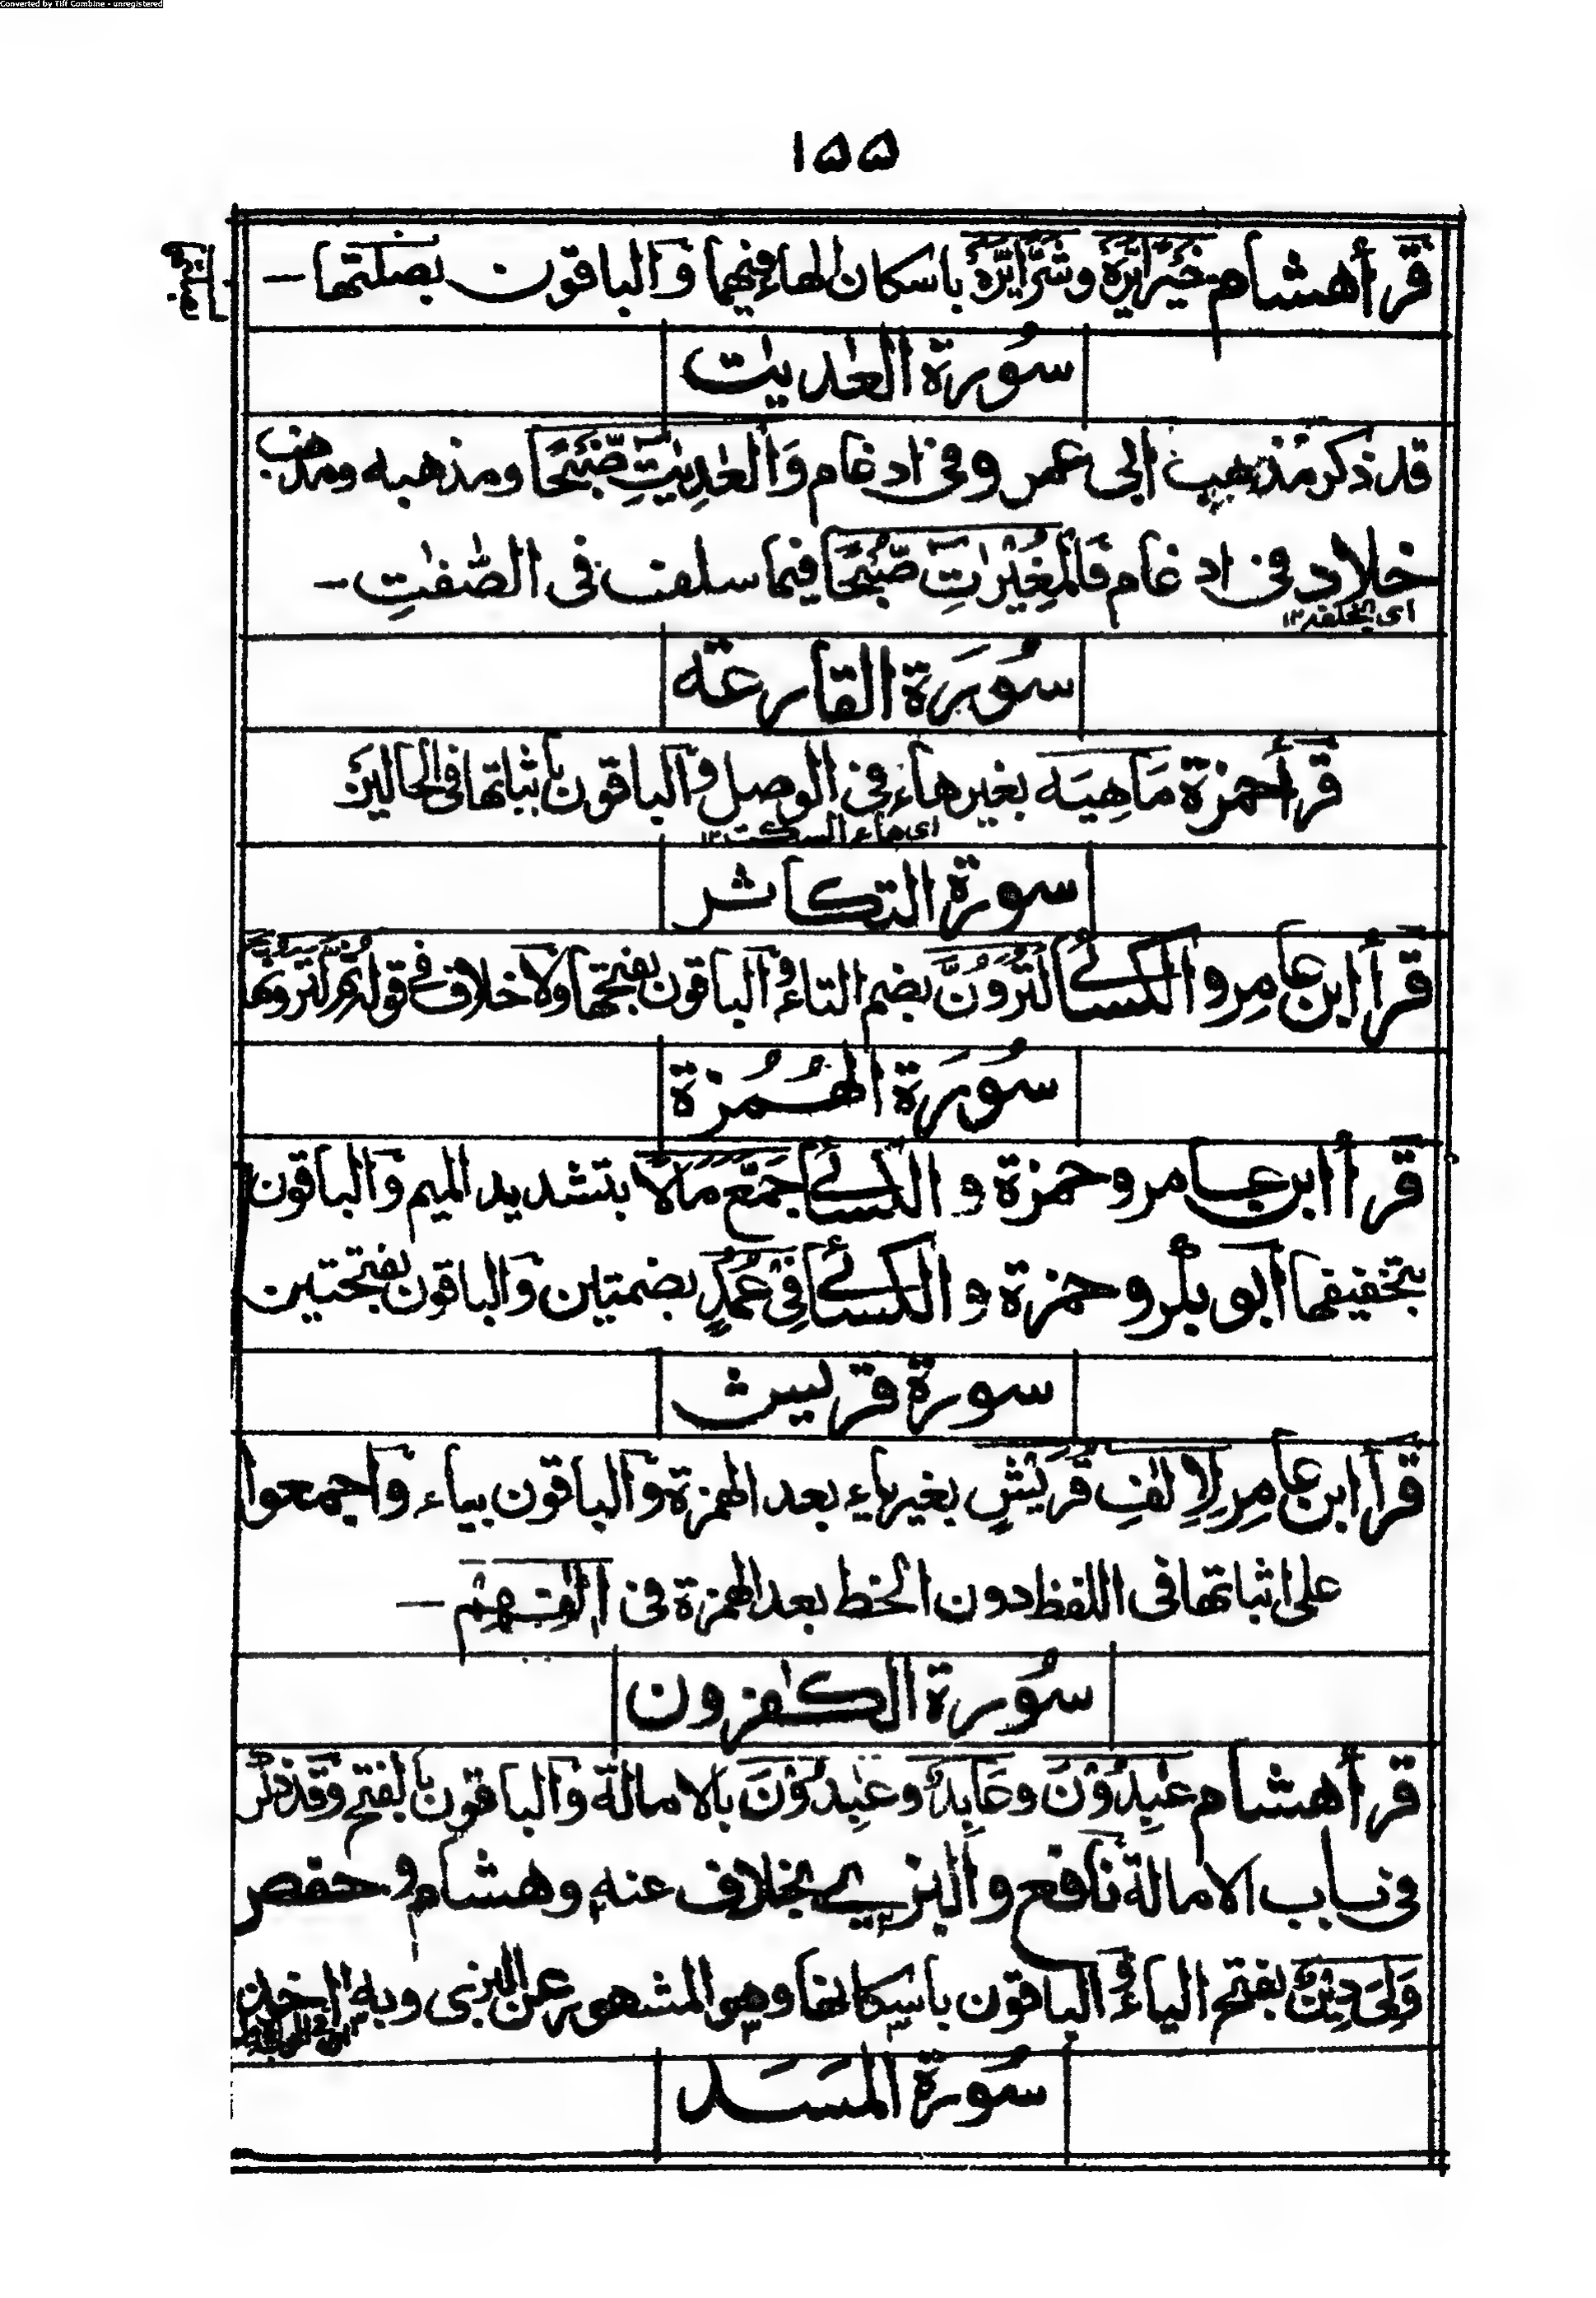 Converted by Tiff Combine - unregistered
١٥٥
قرأ هشام خَيْرًا يَرَهْ وشَرًّا يَرَهْ باسكان الهاء فيهما والباقون بصلتها —
سُورة العٰديٰت
قد ذكر مذهب ابى عمرو فى ادغام وَالْعٰدِيٰتِ ضَّبْحًا ومذهبه ومذهب
خلاد فى ادغام فَالْمُغِيْرٰتِ صُّبْحًا فيما سلف فى الصّٰفٰتِ —
اى بخلفه ١٢
سُورَة القارعة
قرأ حمزة مَاهِيَه بغير هاء فى الوصل والباقون باثباتها فى الحالين
اى هاء السكت ١٢
سورة التكاثر
قرأ ابن عامر والكسائے لَتُرَوُنَّ بضم التاء والباقون بفتحها ولا خلاف فے قوله ثُمَّ لَتَرَوُنَّهَا
سُورَة الهُمُزة
قرأ ابن عامر وحمزة و الكسائے جَمَّعَ مَالًا بتشديد الميم والباقون
بتخفيفها ابو بكر وحمزة و الكسائے فِىْ عُمُدٍ بضمتين والباقون بفتحتين
سورة قريش
قرأ ابن عامر لِاِلٰفِ قُرَيْشٍ بغير ياء بعد الهمزة والباقون بياء واجمعوا
على اثباتها فى اللفظ دون الخط بعد الهمزة فى اٖلٰفِهِمْ —
سُورة الكٰفرون
قرأ هشام عٰبِدُوْنَ وعَابِدٌ وعٰبِدُوْنَ بالامالة والباقون بالفتح وقد ذكر
فى باب الامالة نافع والبزے بخلاف عنه وهشام وحفص
وَلِىَ دِيْنِ بفتح الياء والباقون باسكانها وهو المشهور عن البزى وبه اٰخذ
سُورة المَسَد